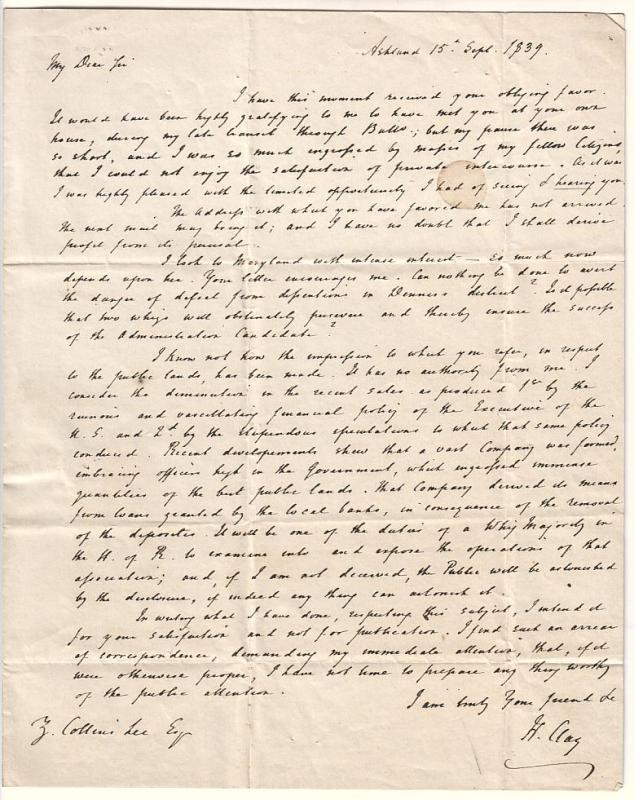 Ashland 15h Sept. 1839.
My Dear Sir
I have this moment received your obliging favor.
It would have been highly gratifying to me to have met you at your own
house, during my late transit through Balto; but my pause there was
so short, and I was so much engrossed by masses of my fellow Citizens,
that I could not enjoy the satisfaction of private intercourse. As it was
I was highly pleased with the limited opportunity I had of seeing & hearing you.
The Address with which you have favored me has not arrived.
The next mail may bring it; and I have no doubt that I shall derive
profit from its perusal.
I look to Maryland with intense interest — so much now
depends upon her. Your letter encourages me. Can nothing be done to avert
the danger of defeat from dissentions in Dennis's district? Is it possible
that two whigs will obstinately persevere and thereby insure the success
of the Administration Candidate?
I know not how the impression to which you refer, in respect
to the public lands, has been made. It has no authority from me. I
consider the diminution in the recent sales as produced 1st by the
ruinous and vascillating financial policy of the Executive of the
U. S. and 2d by the stupendous speculations to which that same policy
conduced. Recent developements shew that a vast Company was formed,
imbracing officers high in the Government, which engrossed immense
quantities of the best public lands. That Company derived its means
from loans granted by the local banks, in consequence of the removal
of the deposites. It will be one of the duties of a Whig Majority in
the H. of R. to examine into and expose the operations of that
association; and, if I am not deceived, the Public will be astonished
by the disclosure, if indeed any thing can astonish it.
In writing what I have done, respecting this subject, I intend it
for your satisfaction and not for publication. I find such an arrear
of correspondence, demanding my immediate attention, that, if it
were otherwise proper, I have not time to prepare any thing worthy
of the public attention.
I am truly Your friend &c
Z. Collins Lee Esqr
H. Clay